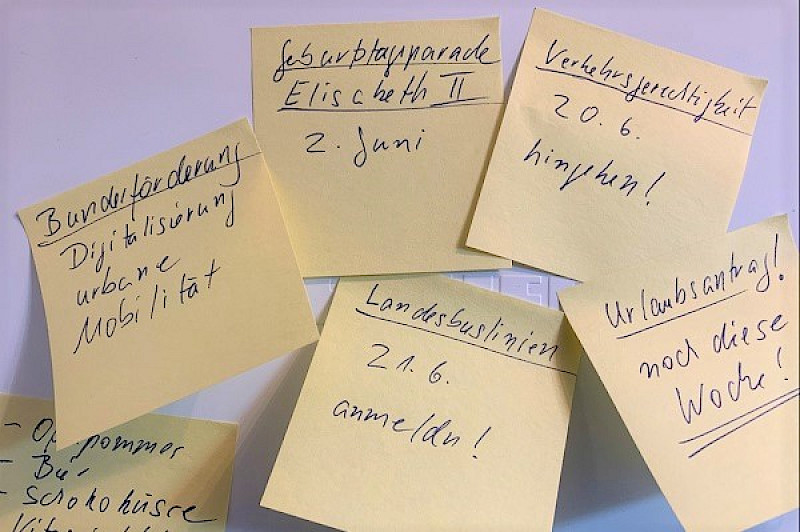 Geburtstagsparade
Elisabeth II
2. Juni
Verkehrsgerechtigkeit
20.6.
hingehen!
Bundesförderung
Digitalisierung
urbane
Mobilität
Landesbuslinien
21.6.
anmelden!
Urlaubsantrag!
noch diese
Woche!
-
-
- Schokoküsse